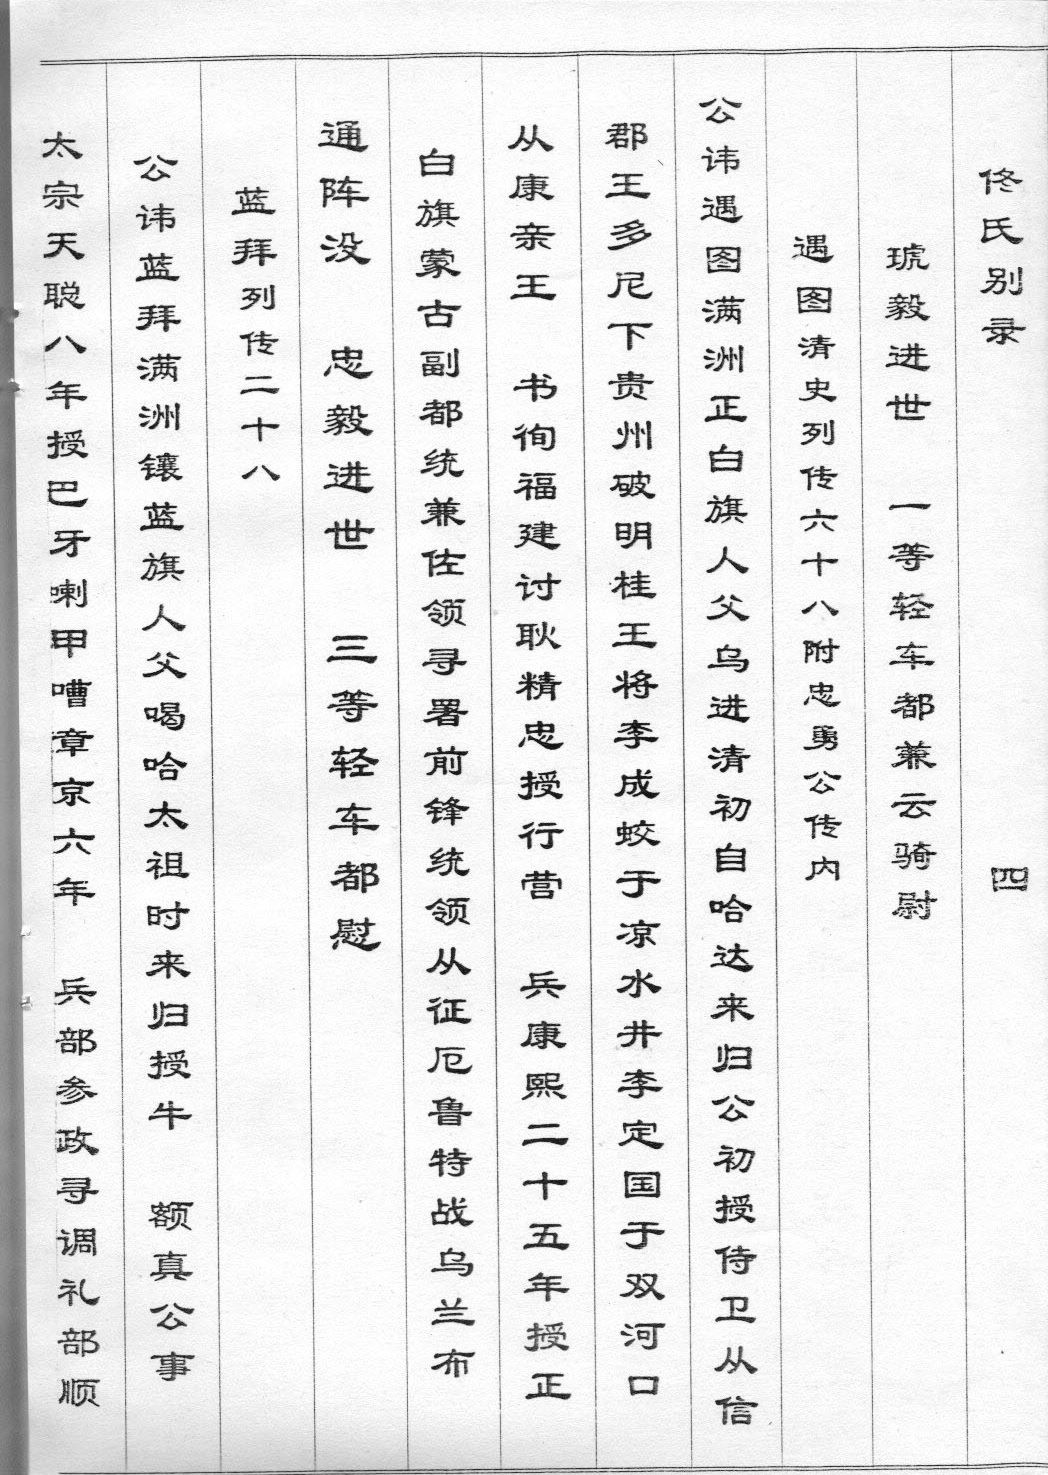 佟氏别录 四
琥毅进世 一等轻车都兼云骑尉
遇图清史列传六十八附忠勇公传内
公讳遇图满洲正白旗人父乌进清初自哈达来归公初授侍卫从信
郡王多尼下贵州破明桂王将李成蛟于凉水井李定国于双河口
从康亲王 书徇福建讨耿精忠授行营 兵康熙二十五年授正
白旗蒙古副都统兼佐领寻署前锋统领从征厄鲁特战乌兰布
通阵没 忠毅进世 三等轻车都慰
蓝拜列传二十八
公讳蓝拜满洲镶蓝旗人父噶哈太祖时来归授牛 额真公事
太宗天聪八年授巴牙喇甲嘈章京六年 兵部参政寻调礼部顺